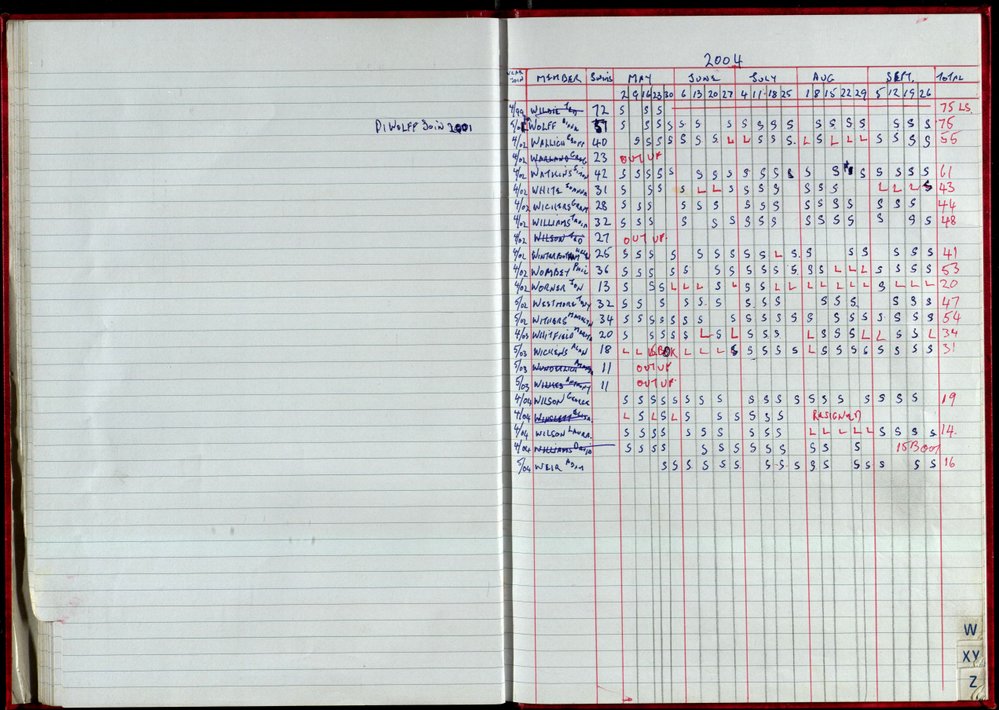 DI WOLFF JOIN 2001
2004
YEAR JOIN MEMBER SWIMS MAY JUNE JULY AUG SEPT. TOTAL
2 9 16 23 30 6 13 20 27 4 11 18 25 1 8 15 22 29 5 12 19 26
4/99 72 S S S 75 LS.
WOLFF S S S S S S S S S S S S S S S S S 76
4/02 WALLICH GEOFF 40 S S S S S S S S L L S S S. L S L L L S S S S 55
4/02 23 OUT UP
4/02 WATKINS 42 S S S S S S S S S S S S S S S S S S S S 61
4/02 WHITE 31 S S S S L L S S S S S S S L L L S 43
4/02 WICKERS 28 S S S S S S S S S S S S S S S S 44
4/02 WILLIAMS 32 S S S S S S S S S S S S S S S S 48
4/02 WILSON TED 27 OUT UP.
4/02 WINTERBOTHAM 25 S S S S S S S S L S S S S S S S 41
4/02 WOMBEY PHIL 36 S S S S S S S S S S S S S L L L S S S S 53
4/02 WORNER JON 13 S S S L L L S L S S L L L L L L S L L L 20
5/02 WESTMORE TONY 32 S S S S S S S S S S S S S S S 47
5/02 WITHERS 34 S S S S S S S S S S S S S S S S S S S S 54
4/03 WHITFIELD 20 S S S S S L S L S S S L S S S L L S S L 34
5/03 WICKENS 18 L L L L L S S S S S L S S S S S S S S 31
5/03 WUNDERLICH 11 OUT UP
5/03 11 OUT UP.
4/04 WILSON GEORGE S S S S S S S S S S S S S S S S S S S 19
4/04 L S L S L S S S S S S S RESIGNED
4/04 WILSON LAURA. S S S S S S S S S S L L L L L S S S S 14
4/04 WILLIAMS DAVID S S S S S S S S S S S S S
5/04 WEIR S S S S S S S S S S S S S S S S 16
W
XY
Z